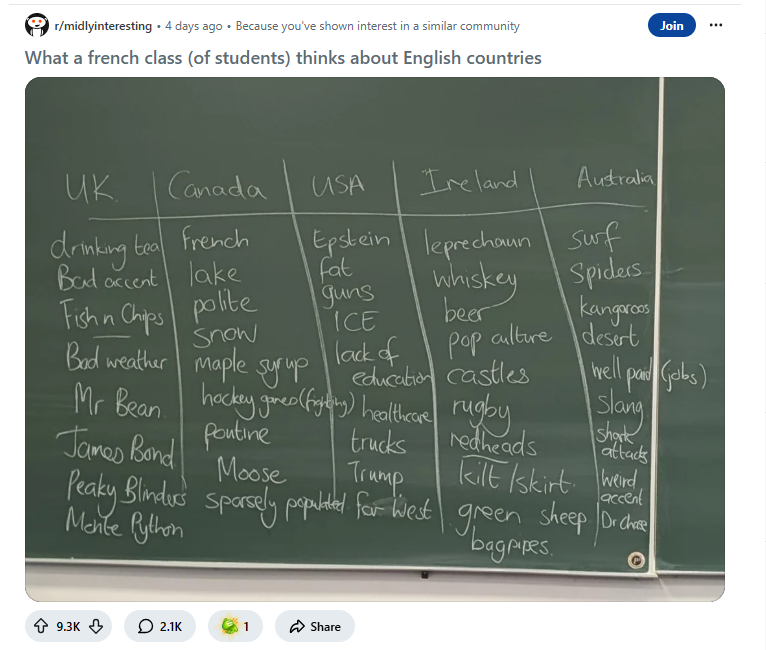 r/midlyinteresting • 4 days ago • Because you've shown interest in a similar community
Join
What a french class (of students) thinks about English countries
UK
Canada
USA
Ireland
Australia
drinking tea
Bad accent
Fish n Chips
Bad weather
Mr Bean
James Bond
Peaky Blinders
Monte Python
French
lake
polite
snow
Maple syrup
hockey games (fighting)
poutine
Moose
sparsely populated
Epstein
fat
guns
ICE
lack of
education
healthcare
trucks
Trump
far West
leprechaun
whiskey
beer
pop culture
castles
rugby
redheads
kilt/skirt
green sheep
bagpipes.
surf
spiders
kangaroos
desert
well paid (jobs)
slang
shark
attacks
weird
accent
9.3K
2.1K
1
Share